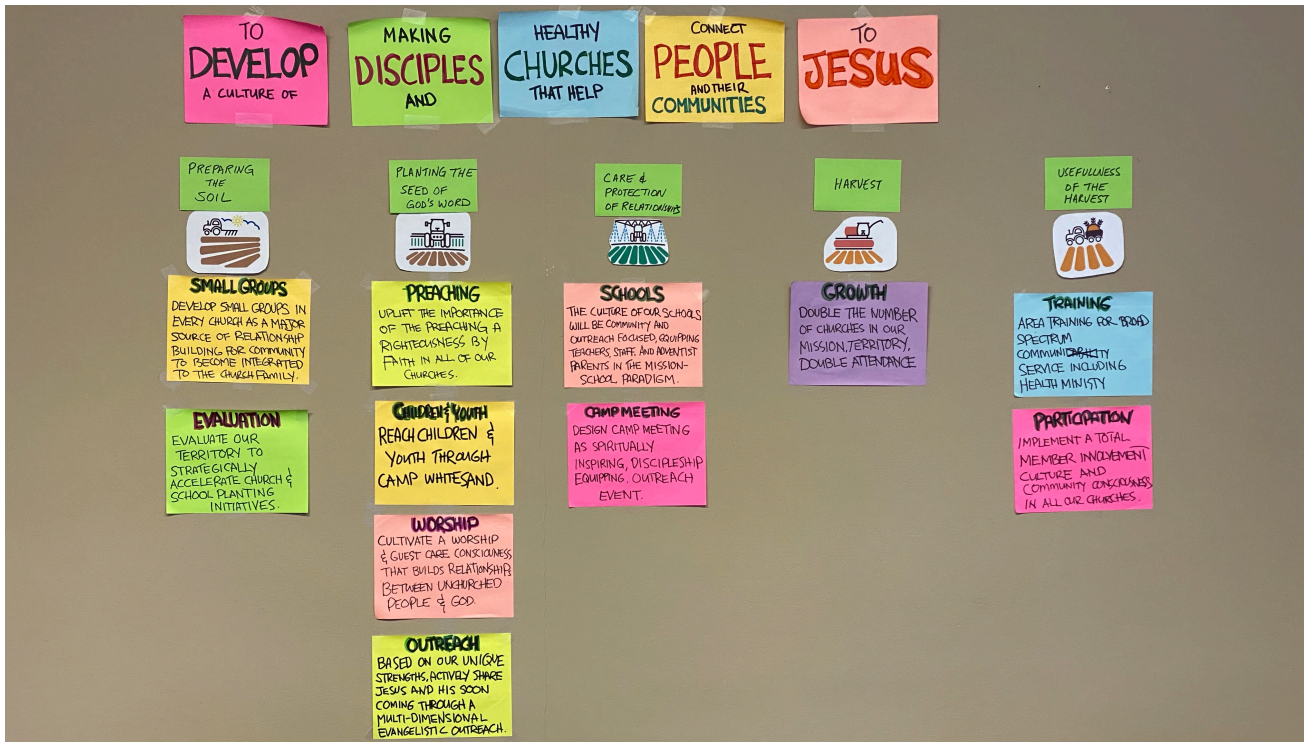 TO
DEVELOP
A CULTURE OF
MAKING
DISCIPLES
AND
HEALTHY
CHURCHES
THAT HELP
CONNECT
PEOPLE
AND THEIR
COMMUNITIES
TO
JESUS
PREPARING
THE
SOIL
SMALL GROUPS
DEVELOP SMALL GROUPS IN
EVERY CHURCH AS A MAJOR
SOURCE OF RELATIONSHIP
BUILDING FOR COMMUNITY
TO BECOME INTEGRATED
TO THE CHURCH FAMILY.
EVALUATION
EVALUATE OUR
TERRITORY TO
STRATEGICALLY
ACCELERATE CHURCH &
SCHOOL PLANTING
INITIATIVES.
PLANTING THE
SEED OF
GOD'S WORD
PREACHING
UPLIFT THE IMPORTANCE
OF THE PREACHING A
RIGHTEOUSNESS BY
FAITH IN ALL OF OUR
CHURCHES.
CHILDREN & YOUTH
REACH CHILDREN &
YOUTH THROUGH
CAMP WHITESAND.
WORSHIP
CULTIVATE A WORSHIP
& GUEST CARE CONSCIOUNESS
THAT BUILDS RELATIONSHIPS
BETWEEN UNCHURCHED
PEOPLE & GOD.
OUTREACH
BASED ON OUR UNIQUE
STRENGTHS, ACTIVELY SHARE
JESUS AND HIS SOON
COMING THROUGH A
MULTI-DIMENSIONAL
EVANGELISTIC OUTREACH.
CARE &
PROTECTION
OF RELATIONSHIPS
SCHOOLS
THE CULTURE OF OUR SCHOOLS
WILL BE COMMUNITY AND
OUTREACH FOCUSED, EQUIPPING
TEACHERS, STAFF, AND ADVENTIST
PARENTS IN THE MISSION-
SCHOOL PARADIGM.
CAMP MEETING
DESIGN CAMP MEETING
AS SPIRITUALLY
INSPIRING, DISCIPLESHIP
EQUIPPING, OUTREACH
EVENT.
HARVEST
GROWTH
DOUBLE THE NUMBER
OF CHURCHES IN OUR
MISSION, TERRITORY,
DOUBLE ATTENDANCE
USEFULLNESS
OF THE
HARVEST
TRAINING
AREA TRAINING FOR BROAD
SPECTRUM
COMMUNITY
SERVICE INCLUDING
HEALTH MINISTY
PARTICIPATION
IMPLEMENT A TOTAL
MEMBER INVOLVEMENT
CULTURE AND
COMMUNITY CONSCIOUSNESS
IN ALL OUR CHURCHES.